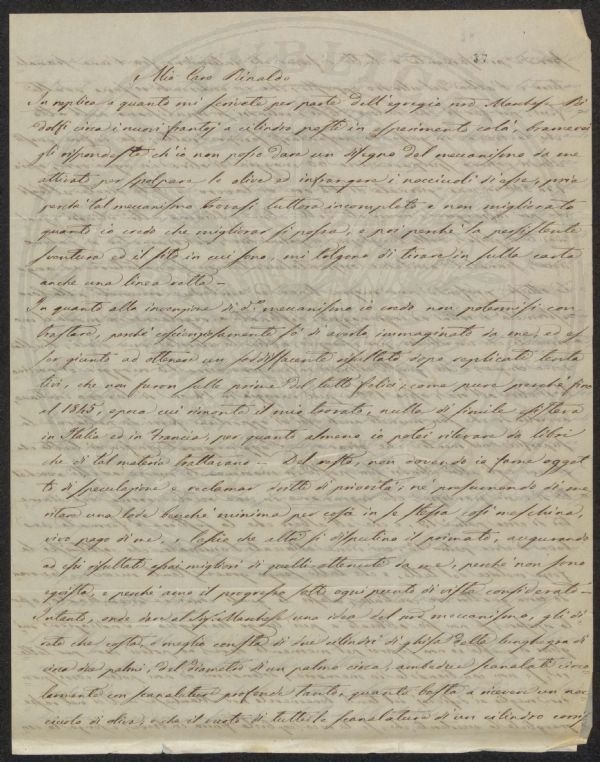 37
Mio Caro Rinaldo
In replica a quanto mi scrivete per parte dell'egregio nro Marchese Ri-
dolfi circa i nuovi frantoj a cilindro posti in esperimento costà, bramerei
gli rispondeste ch'io non posso dare un disegno del meccanismo da me
attivato per spolpare le olive ed infrangere i noccivoli di esse, pria
perchè tal meccanismo trovasi tuttora incompleto e non migliorato
quanto io credo che migliorar si possa, e poi perchè la persistente
sventura ed il sito in cui sono, mi tolgono di tirare in sulla carta
anche una linea retta —
In quanto alla invenzione di d.º meccanismo io credo non potermisi con-
trastare, perchè essere giunto ad ottenere un soddisfacente risultato dopo replicati tenta
tivi, che non furon sulle prime del tutto felici; come pure perchè fino
al 1845, epoca cui rimonta il mio trovato, nulla di simile esisteva
in Italia ed in Francia, per quanto almeno io potei rilevare da libri
che di tal materia trattavano — Del resto, non dovendo io farne ogget
to di speculazione e reclamar dritti di priorità, nè presumendo di me
ritare una lode benchè minima per cosa in se stessa così meschina,
vivo pago di me, e lascio che altri si disputino il primato, augurando
ad essi risultati assai migliori di quelli ottenuti da me, perchè non sono
egoista, e perchè amo il progresso sotto ogni punto di vista considerato —
Intanto, onde dare al Sig. Marchese una idea del mio meccanismo, gli di-
rete che costa, o meglio consta di due cilindri di ghisa della lunghezza di
circa due palmi, del diametro d'un palmo circa, ambedue scanalati circo
larmente con scanalature profonde tanto, quanto basta a ricevere un noc
ciuolo di oliva, e che il vuoto di tutte le scanalature d'un cilindro corri